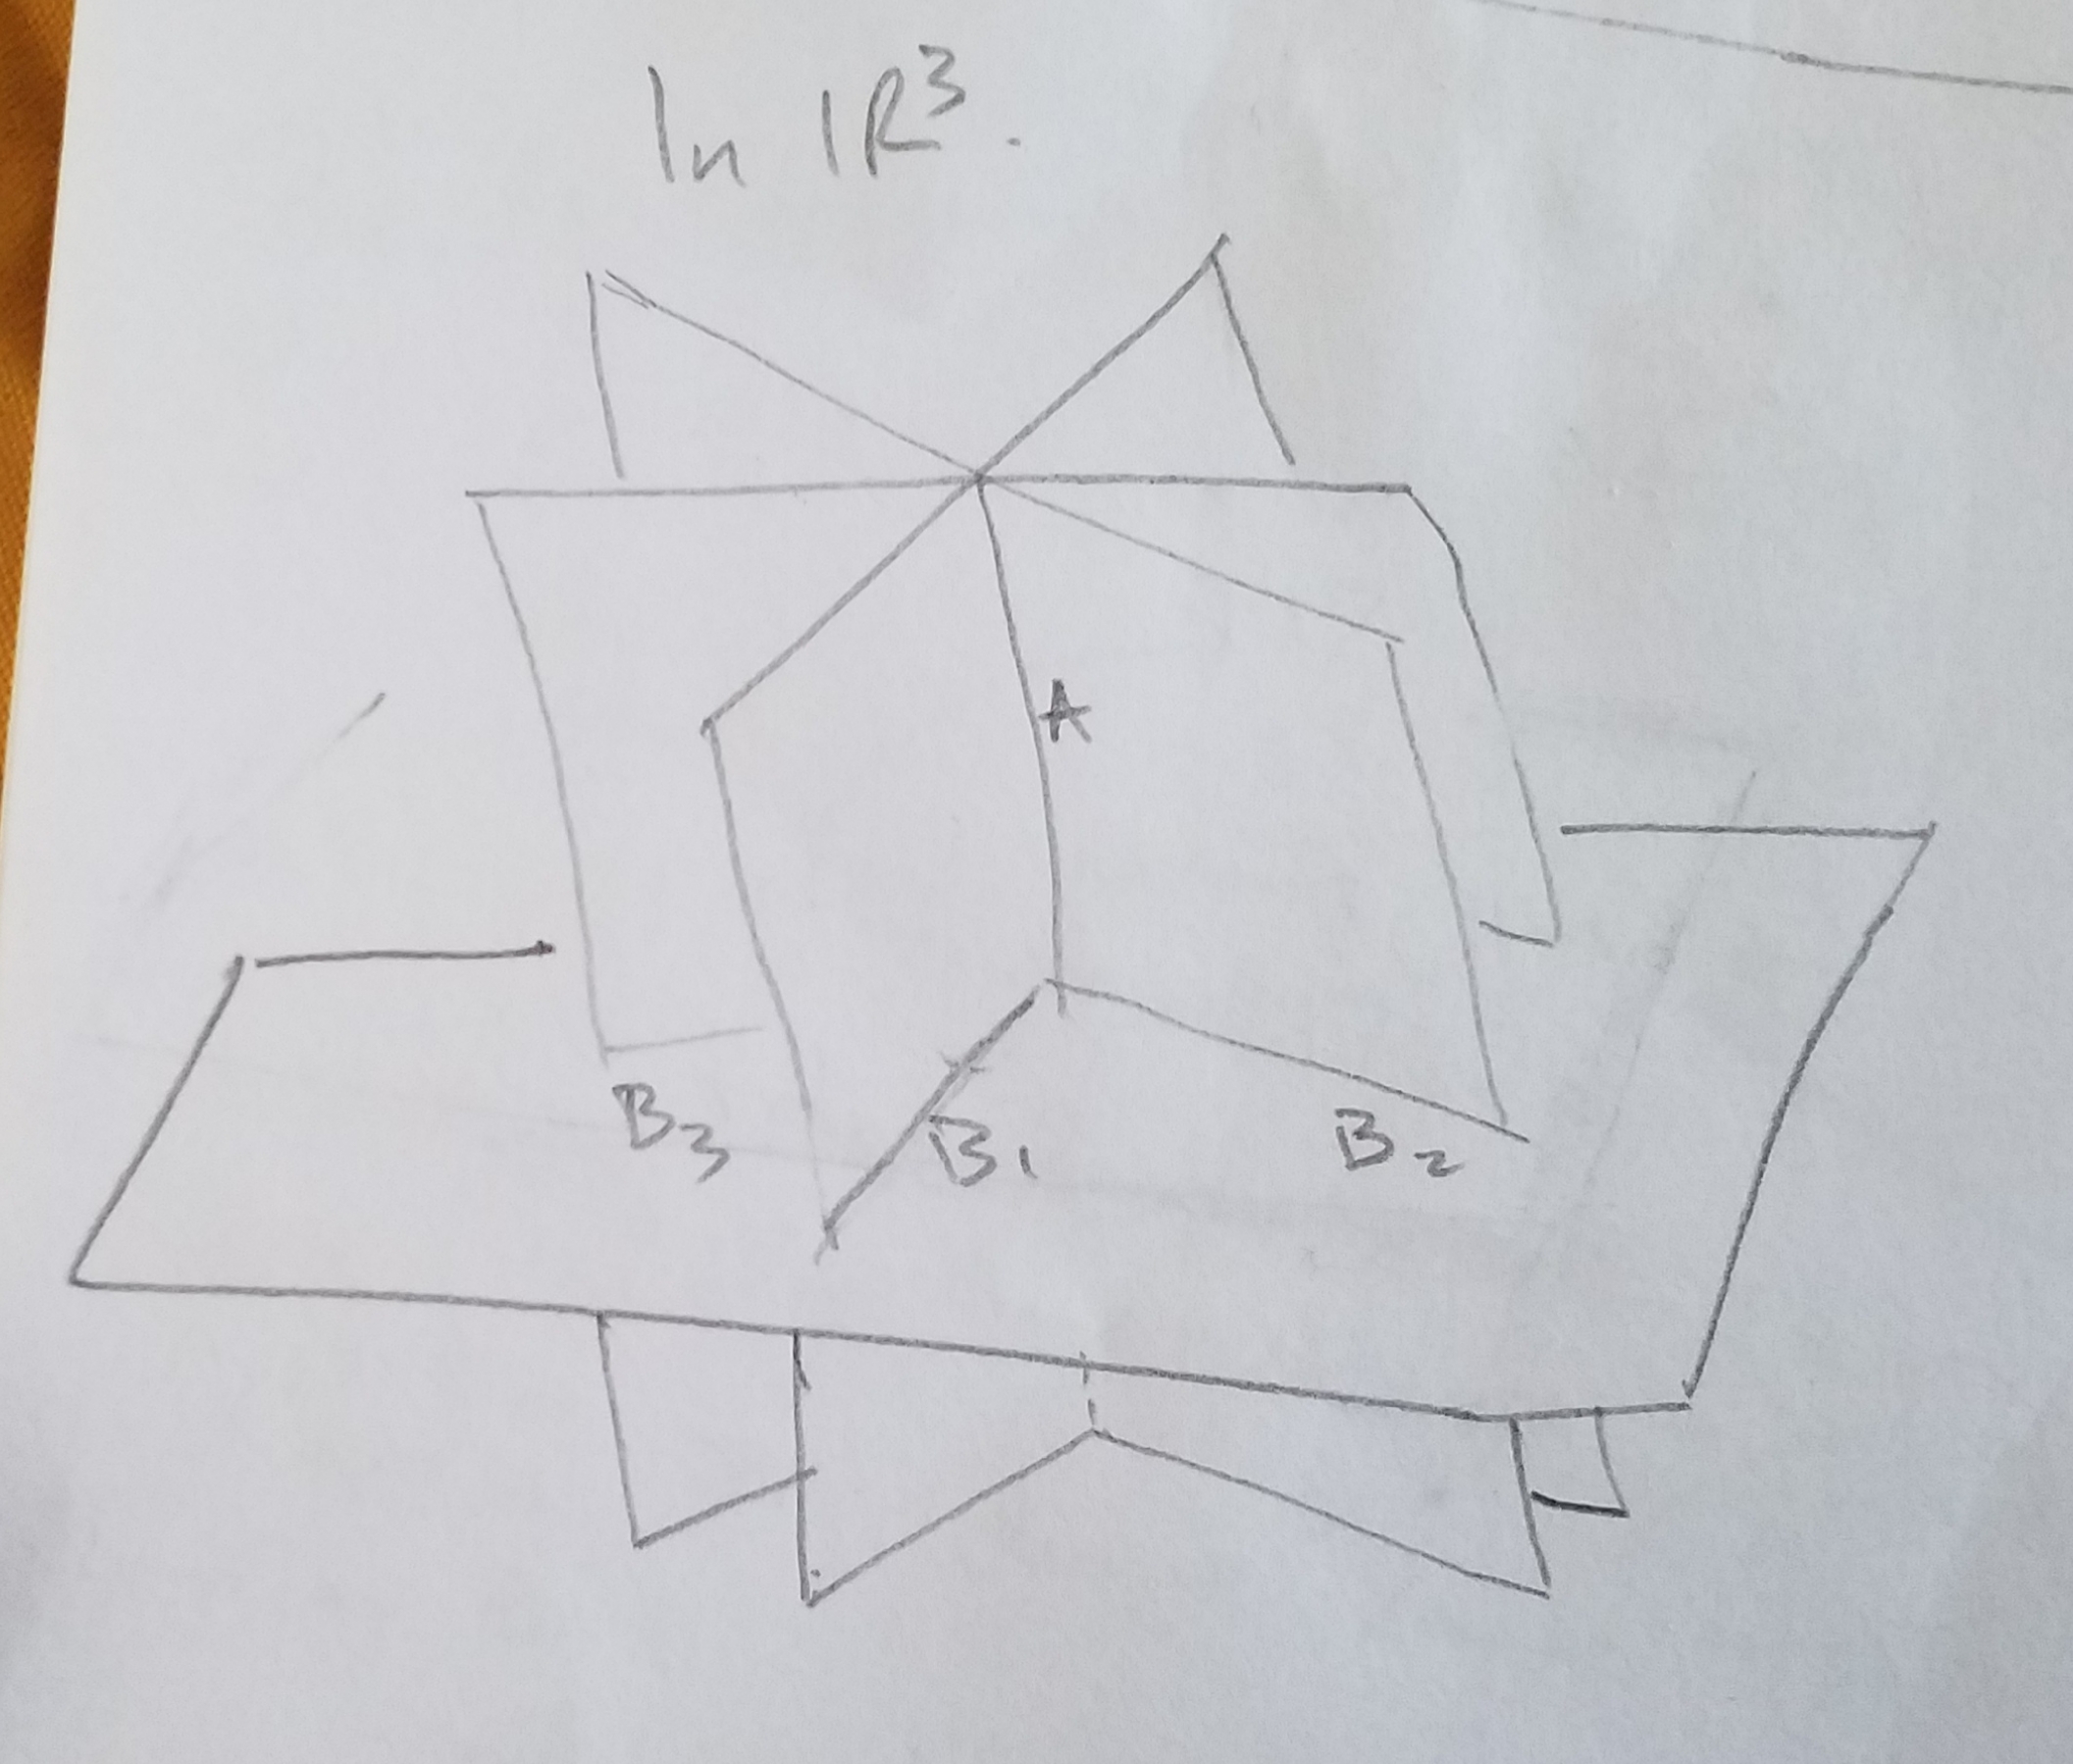 In ℝ³.
A
B₃
B₁
B₂